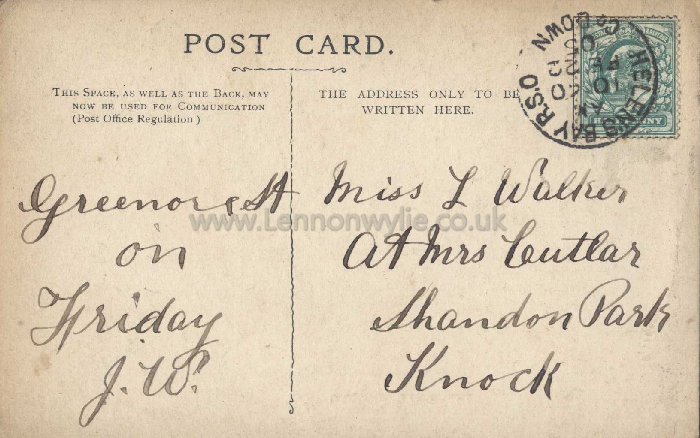 POST CARD.
THIS SPACE, AS WELL AS THE BACK, MAY
NOW BE USED FOR COMMUNICATION
(Post Office Regulation)
THE ADDRESS ONLY TO BE
WRITTEN HERE.
HELENS BAY R.S.O
CO DOWN
Greenore St
on
Friday
J.W.
Miss L Walker
At Mrs Cutlar
Shandon Park
Knock
www.Lennonwylie.co.uk